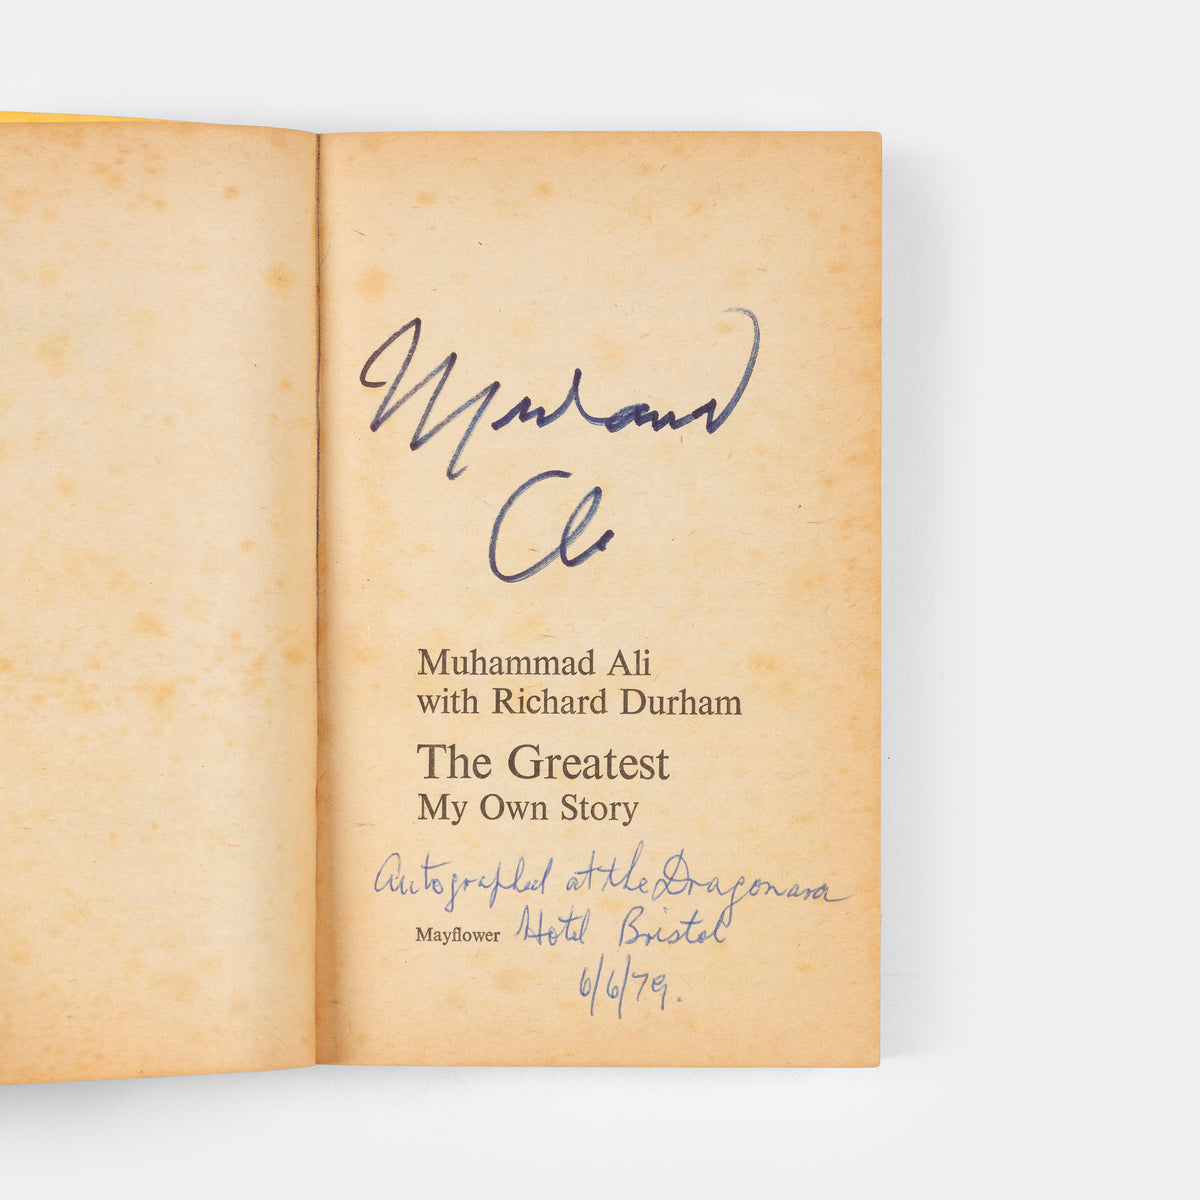 Muhammad
Ali
Muhammad Ali
with Richard Durham
The Greatest
My Own Story
Autographed at the Dragonara
Mayflower Hotel Bristol
6/6/79.